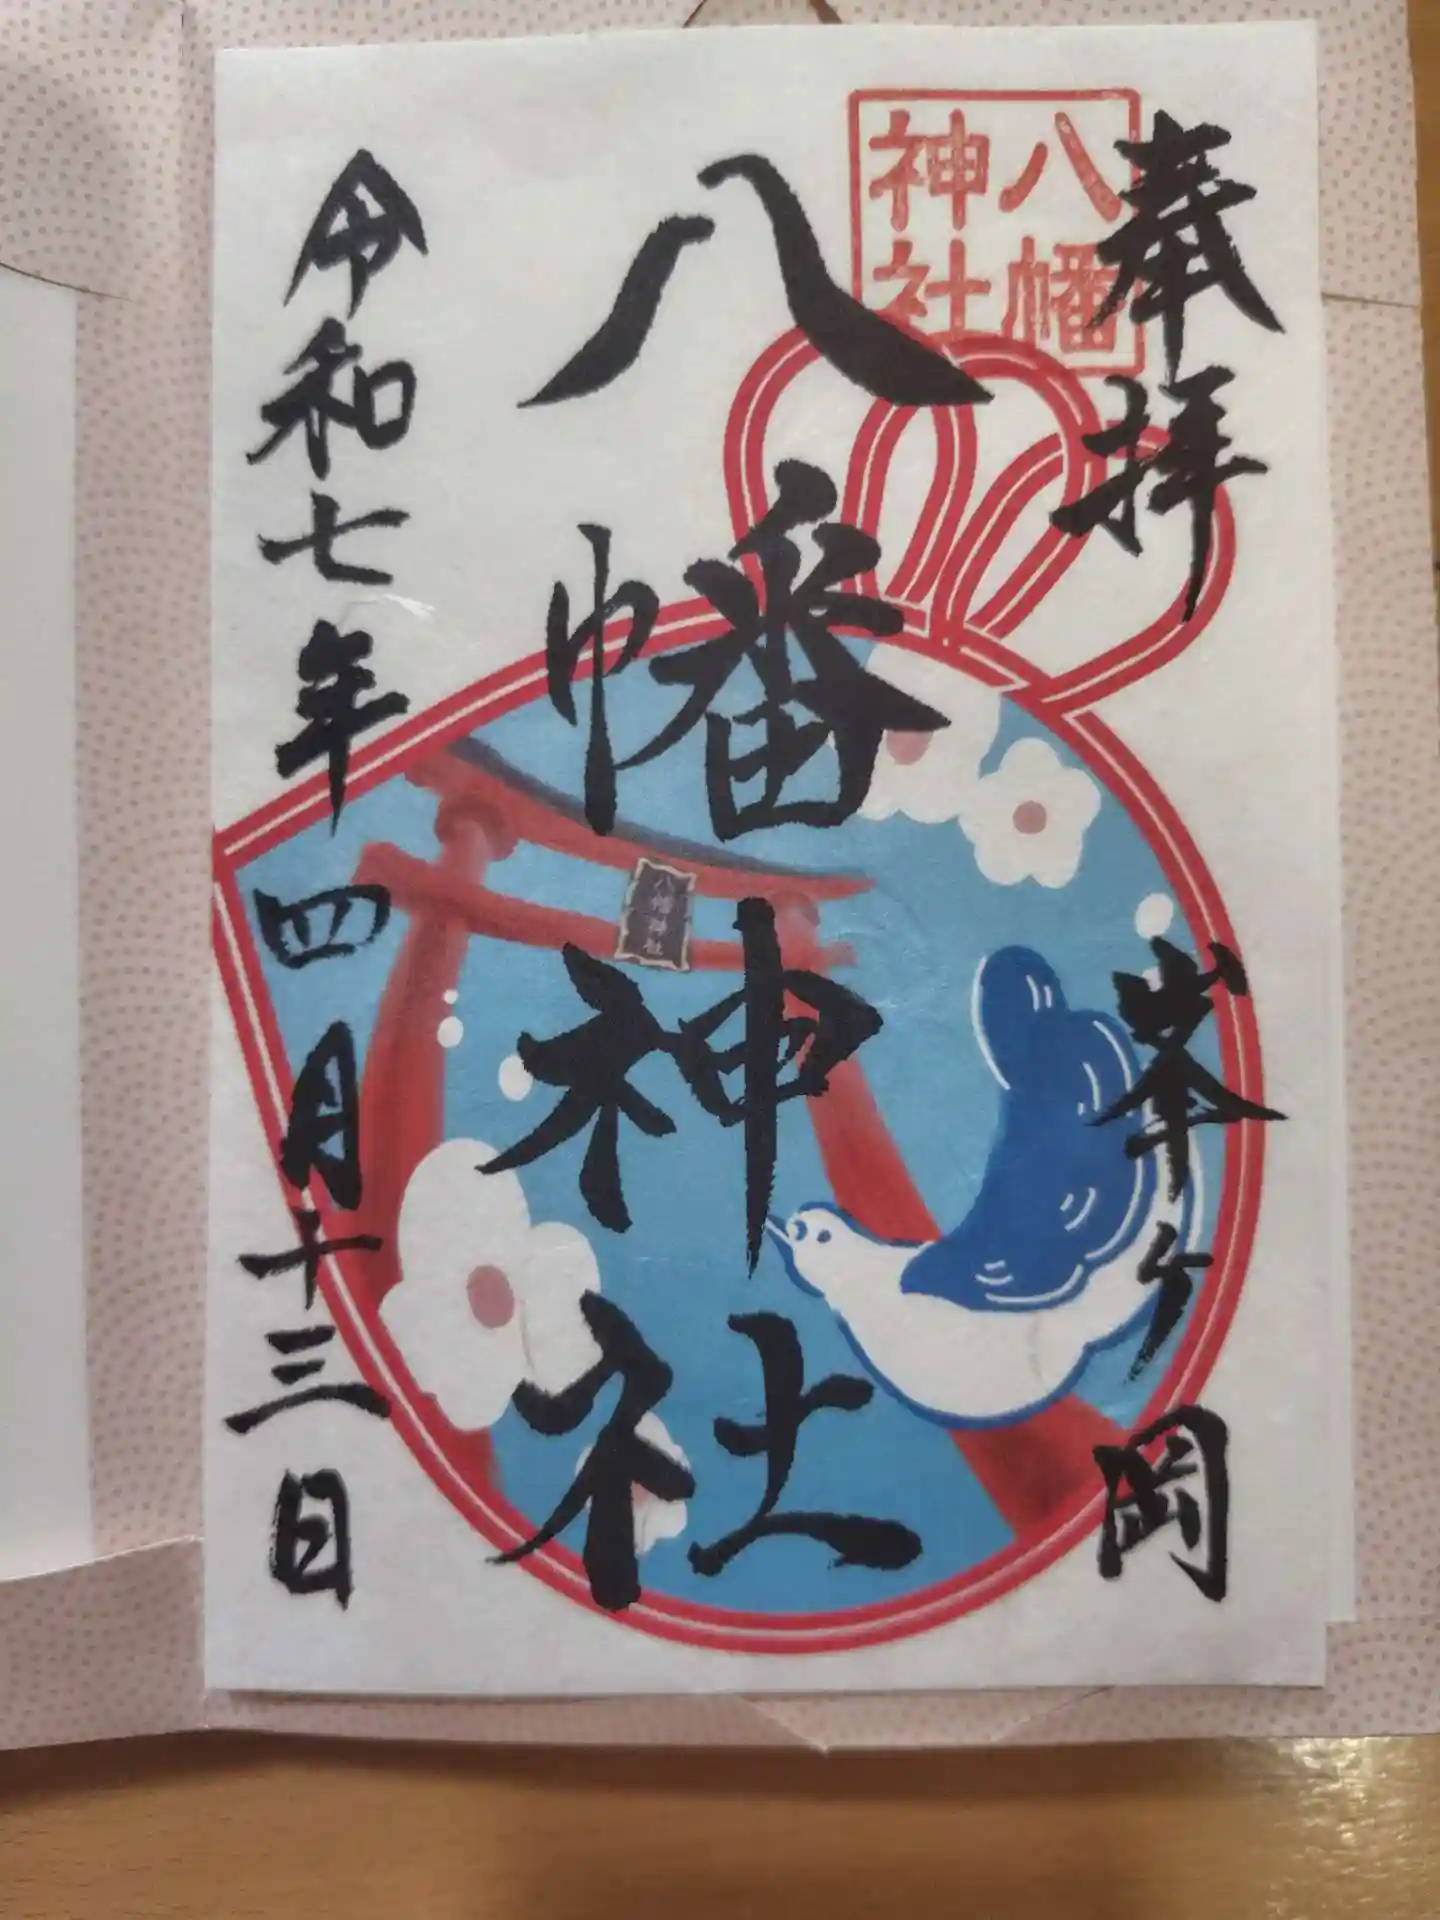 奉拝
峯ヶ岡
八幡
神社
八幡神社
八幡神社
令和七年四月十三日